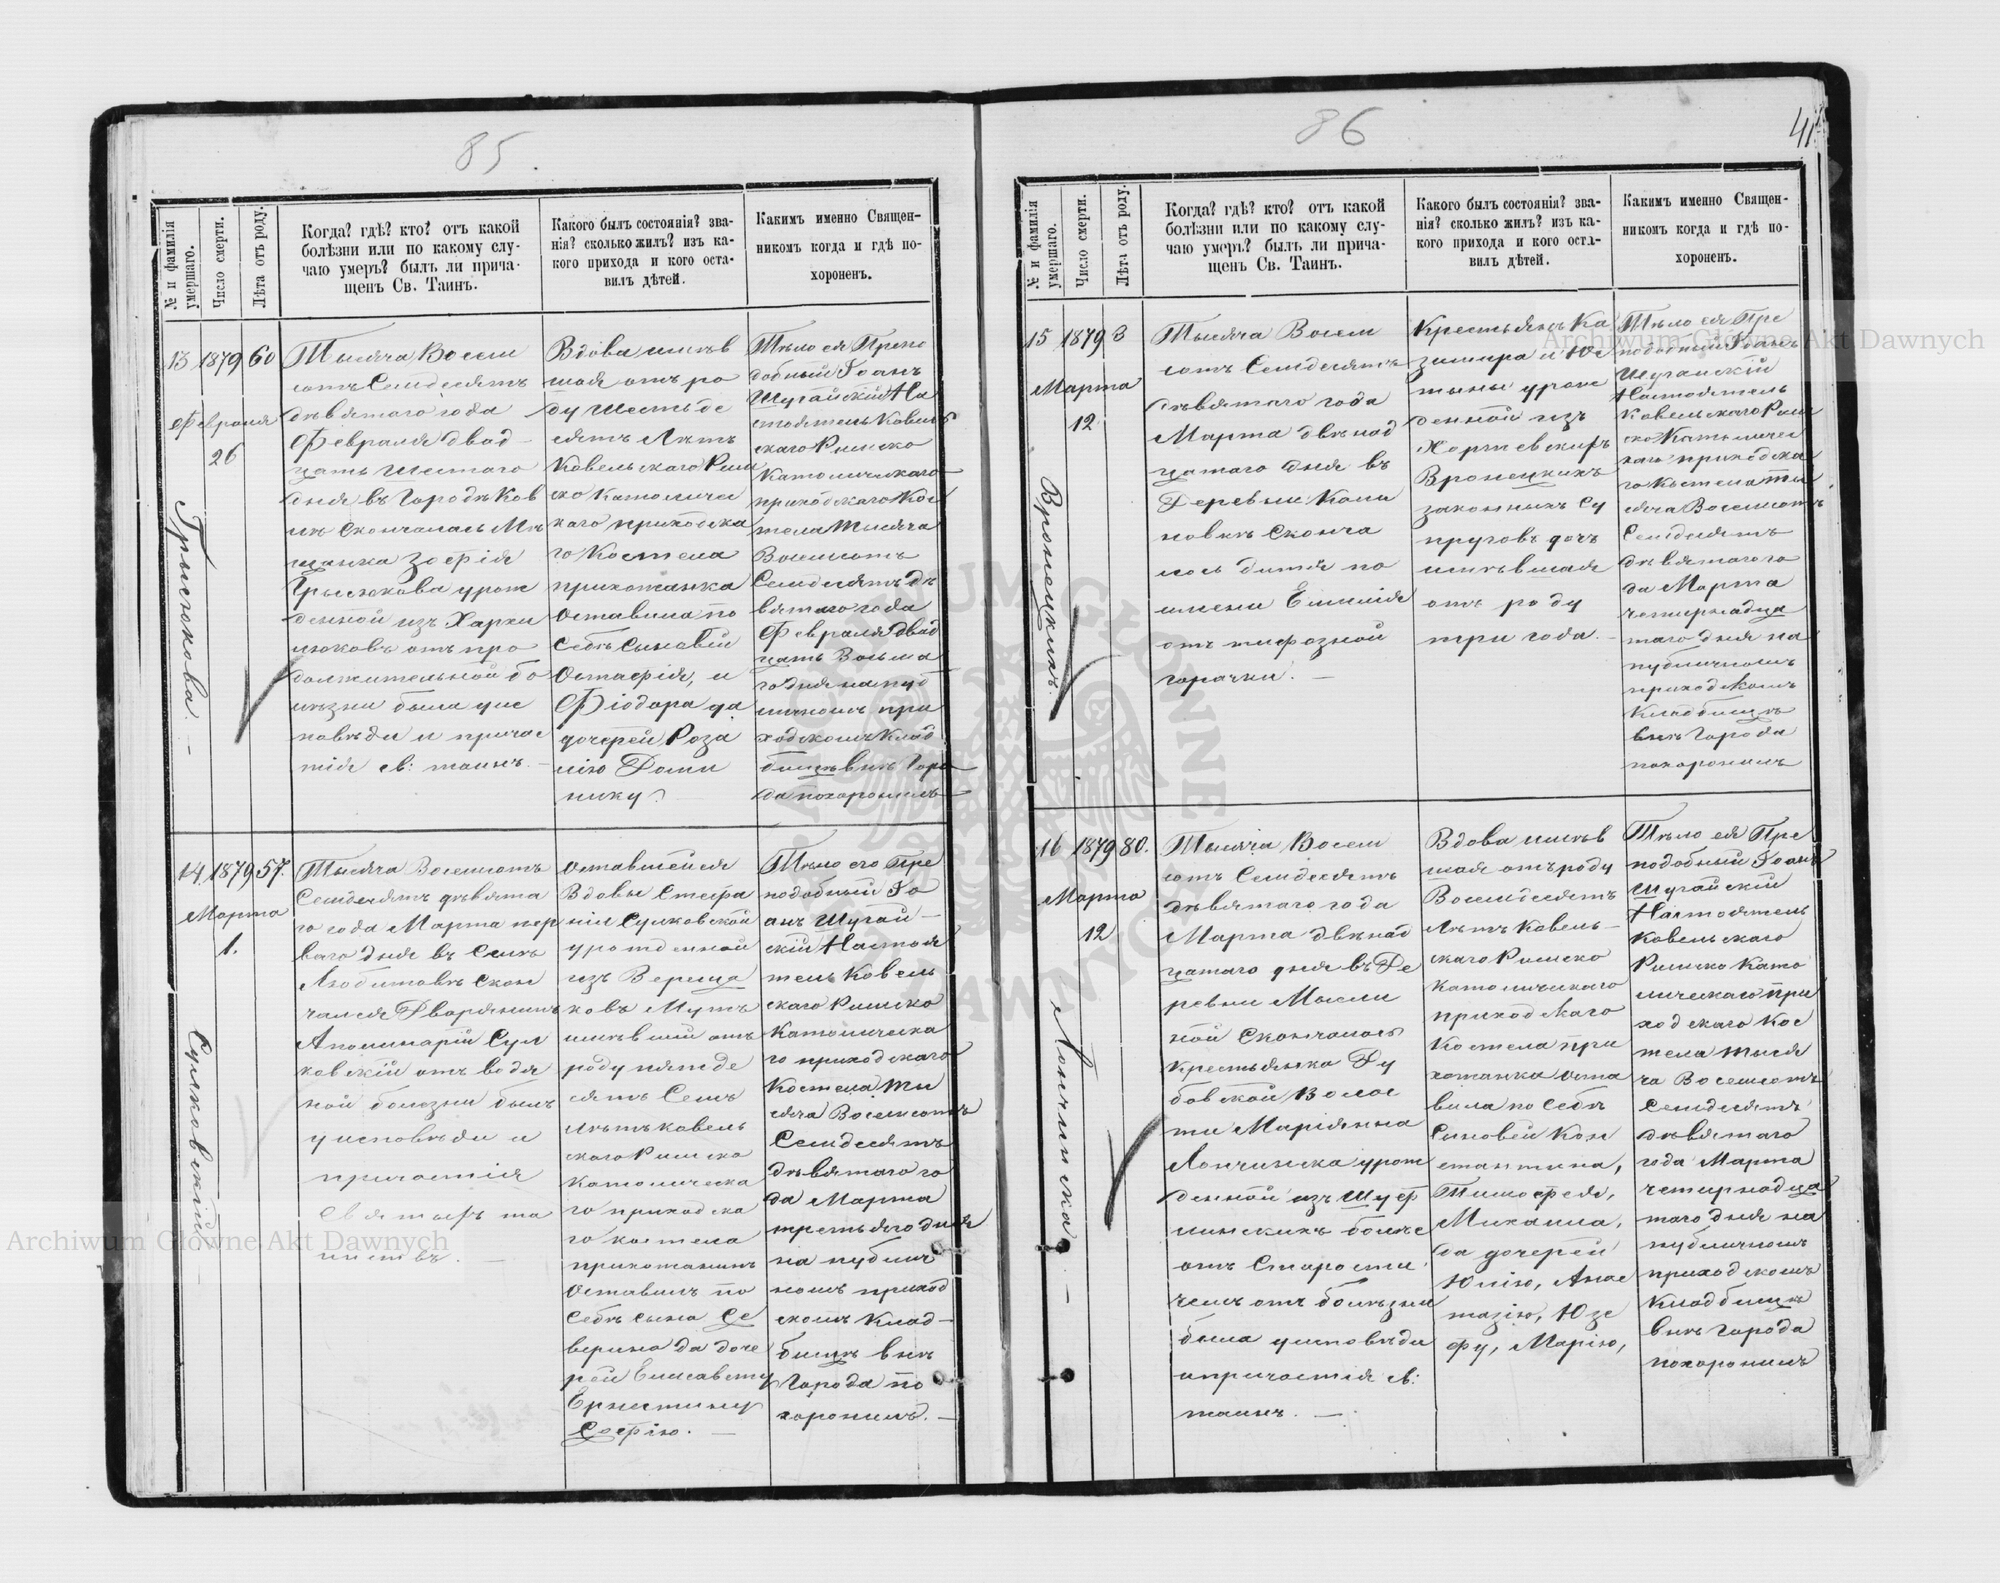 85.
№ и фамилія умершаго.
Число смерти.
Лѣта отъ роду.
Когда? гдѣ? кто? отъ какой
болѣзни или по какому слу-
чаю умеръ? былъ ли прича-
щенъ Св. Таинъ.
Какого былъ состоянія? зва-
нія? сколько жилъ? изъ ка-
кого прихода и кого оста-
вилъ дѣтей.
Каким именно Священ-
никомъ когда и гдѣ по-
хороненъ.
13
Грысюкова. —
1879
Февраля
26
60
Тысяча Восем
сотъ Семдесятъ
дѣвятаго года
Февраля двад-
цать шестаго
дня въ Городѣ Ков
лѣ Скончалась Мѣ
щанка Зофія
Грысюкова урож
денной изъ Харки
люковъ отъ про
должительной бо
лѣзни была у ис
повѣди и причас
тія св: таинъ. —
Вдова имѣв
шая отъ ро
ду шестьде
сятъ Лѣтъ
Ковельскаго Рим
ско Католичес
каго приходска
го Костела
прихожанка
Оставила по
Себѣ Сыновей
Остафія, и
Фіодора да
дочерей Роза
лію Доми
нику. —
Тѣло ея Препо
добный Іоанъ
Шугайскій На
стоятель Ковель
скаго Римско
Католическаго
приходскаго Кос
тела Тысяча
Восемсотъ
Семдесятъ дѣ
вятаго года
Февраля двад
цать Восьма
го дня на пуб
личномъ при
ходскомъ Клад
бищѣ внѣ Горо
да похоронилъ
14
Сулковскій —
1879
Марта
1.
57.
Тысяча Восемсотъ
Семдесятъ дѣвята
го года Марта пер
ваго дня въ Селѣ
Любитовѣ скон
чался Дворянинъ
Аполинарій Сул
ковскій отъ водя
ной болезни былъ
у исповѣди и
причастія
Святыхъ та
инствъ. —
Оставшейся
Вдовы Стефа
ніи Сулковской
урожденной
изъ Вереща
ковъ Мужъ
имѣвшій отъ
роду пятде
сятъ Семъ
лѣтъ ковель
скаго Римско
католическа
го приходска
го костела
прихожанинъ
Оставилъ по
Себѣ сына Се
верина да доче
рей Елисавету
Ернестину
Софію. —
Тѣло его Пре
подобный Іо
анъ Шугай-
скій Настоя
тель Ковель
скаго Римско
Католическа
го приходскаго
Костела Ты
сяча Восемсотъ
Семдесятъ
дѣвятаго го
да Марта
третьяго дня
на публич
номъ приход
скомъ Клад-
бищѣ внѣ
Города по
хоронилъ. —
86
41
№ и фамилія умершаго.
Число смерти.
Лѣта отъ роду.
Когда? гдѣ? кто? отъ какой
болѣзни или по какому слу-
чаю умеръ? былъ ли прича-
щенъ Св. Таинъ.
Какого былъ состоянія? зва-
нія? сколько жилъ? изъ ка-
кого прихода и кого оста-
вилъ дѣтей.
Каким именно Священ-
никомъ когда и гдѣ по-
хороненъ.
15
Вронецкихъ
1879
Марта
12
3
Тысяча Восем
сотъ Семдесятъ
дѣвятаго года
Марта двѣнад
цатаго дня въ
Деревни Коли
новкѣ Сконча
лось дитя по
имени Емилія
отъ тифозной
горячки. —
Крестьянъ Ка
зимира и Юс
тыны урож
денной изъ
Вронецкихъ
законныхъ Су
пруговъ дочь
имѣвшая
отъ роду
три года. —
Тѣло ея Пре
подобный Іоанъ
Шугайскій
Настоятель
Ковельскаго Рим
ско Католичес
каго приходска
го Костела ты
сяча Восемсотъ
Семдесятъ
дѣвятаго го
да Марта
четырнадца
таго дня на
публичномъ
приходскомъ
Кладбищѣ
внѣ Города
похоронилъ
16
Лончинска. —
1879
Марта
12
80.
Тысяча Восем
сотъ Семдесятъ
дѣвятаго года
Марта двѣнад
цатаго дня въ Де
ревни Мысли
ной Скончалась
крестьянка Ду
бовской Волос
ти Маріянна
Лончинска урож
денной изъ Шуф
линскихъ более
отъ Старости
чемъ отъ болѣзни
была у исповѣди
и причастія св:
таинъ. —
Вдова имѣв
шая отъ роду
Восемдесятъ
Лѣтъ Ковель-
скаго Римско
католическаго
приходскаго
Костела при
хожанка оста
вила по Себѣ
Сыновей Кон
стантина,
Тимофея,
Михаила,
да дочерей
Юлію, Анас
тазію, Юзе
фу, Марію,
Тѣло ея Пре
подобный Іоанъ
Шугайскій
Настоятель
Ковельскаго
Римско Като
лическаго при
ходскаго Кос
тела тыся
ча Восемсотъ
Семдесятъ
дѣвятаго
года Марта
четырнадца
таго дня на
публичномъ
приходскомъ
Кладбищѣ
внѣ Города
похоронилъ
Archiwum Główne Akt Dawnych
Archiwum Główne Akt Dawnych
ARCHIWUM GŁÓWNE AKT DAWNYCH